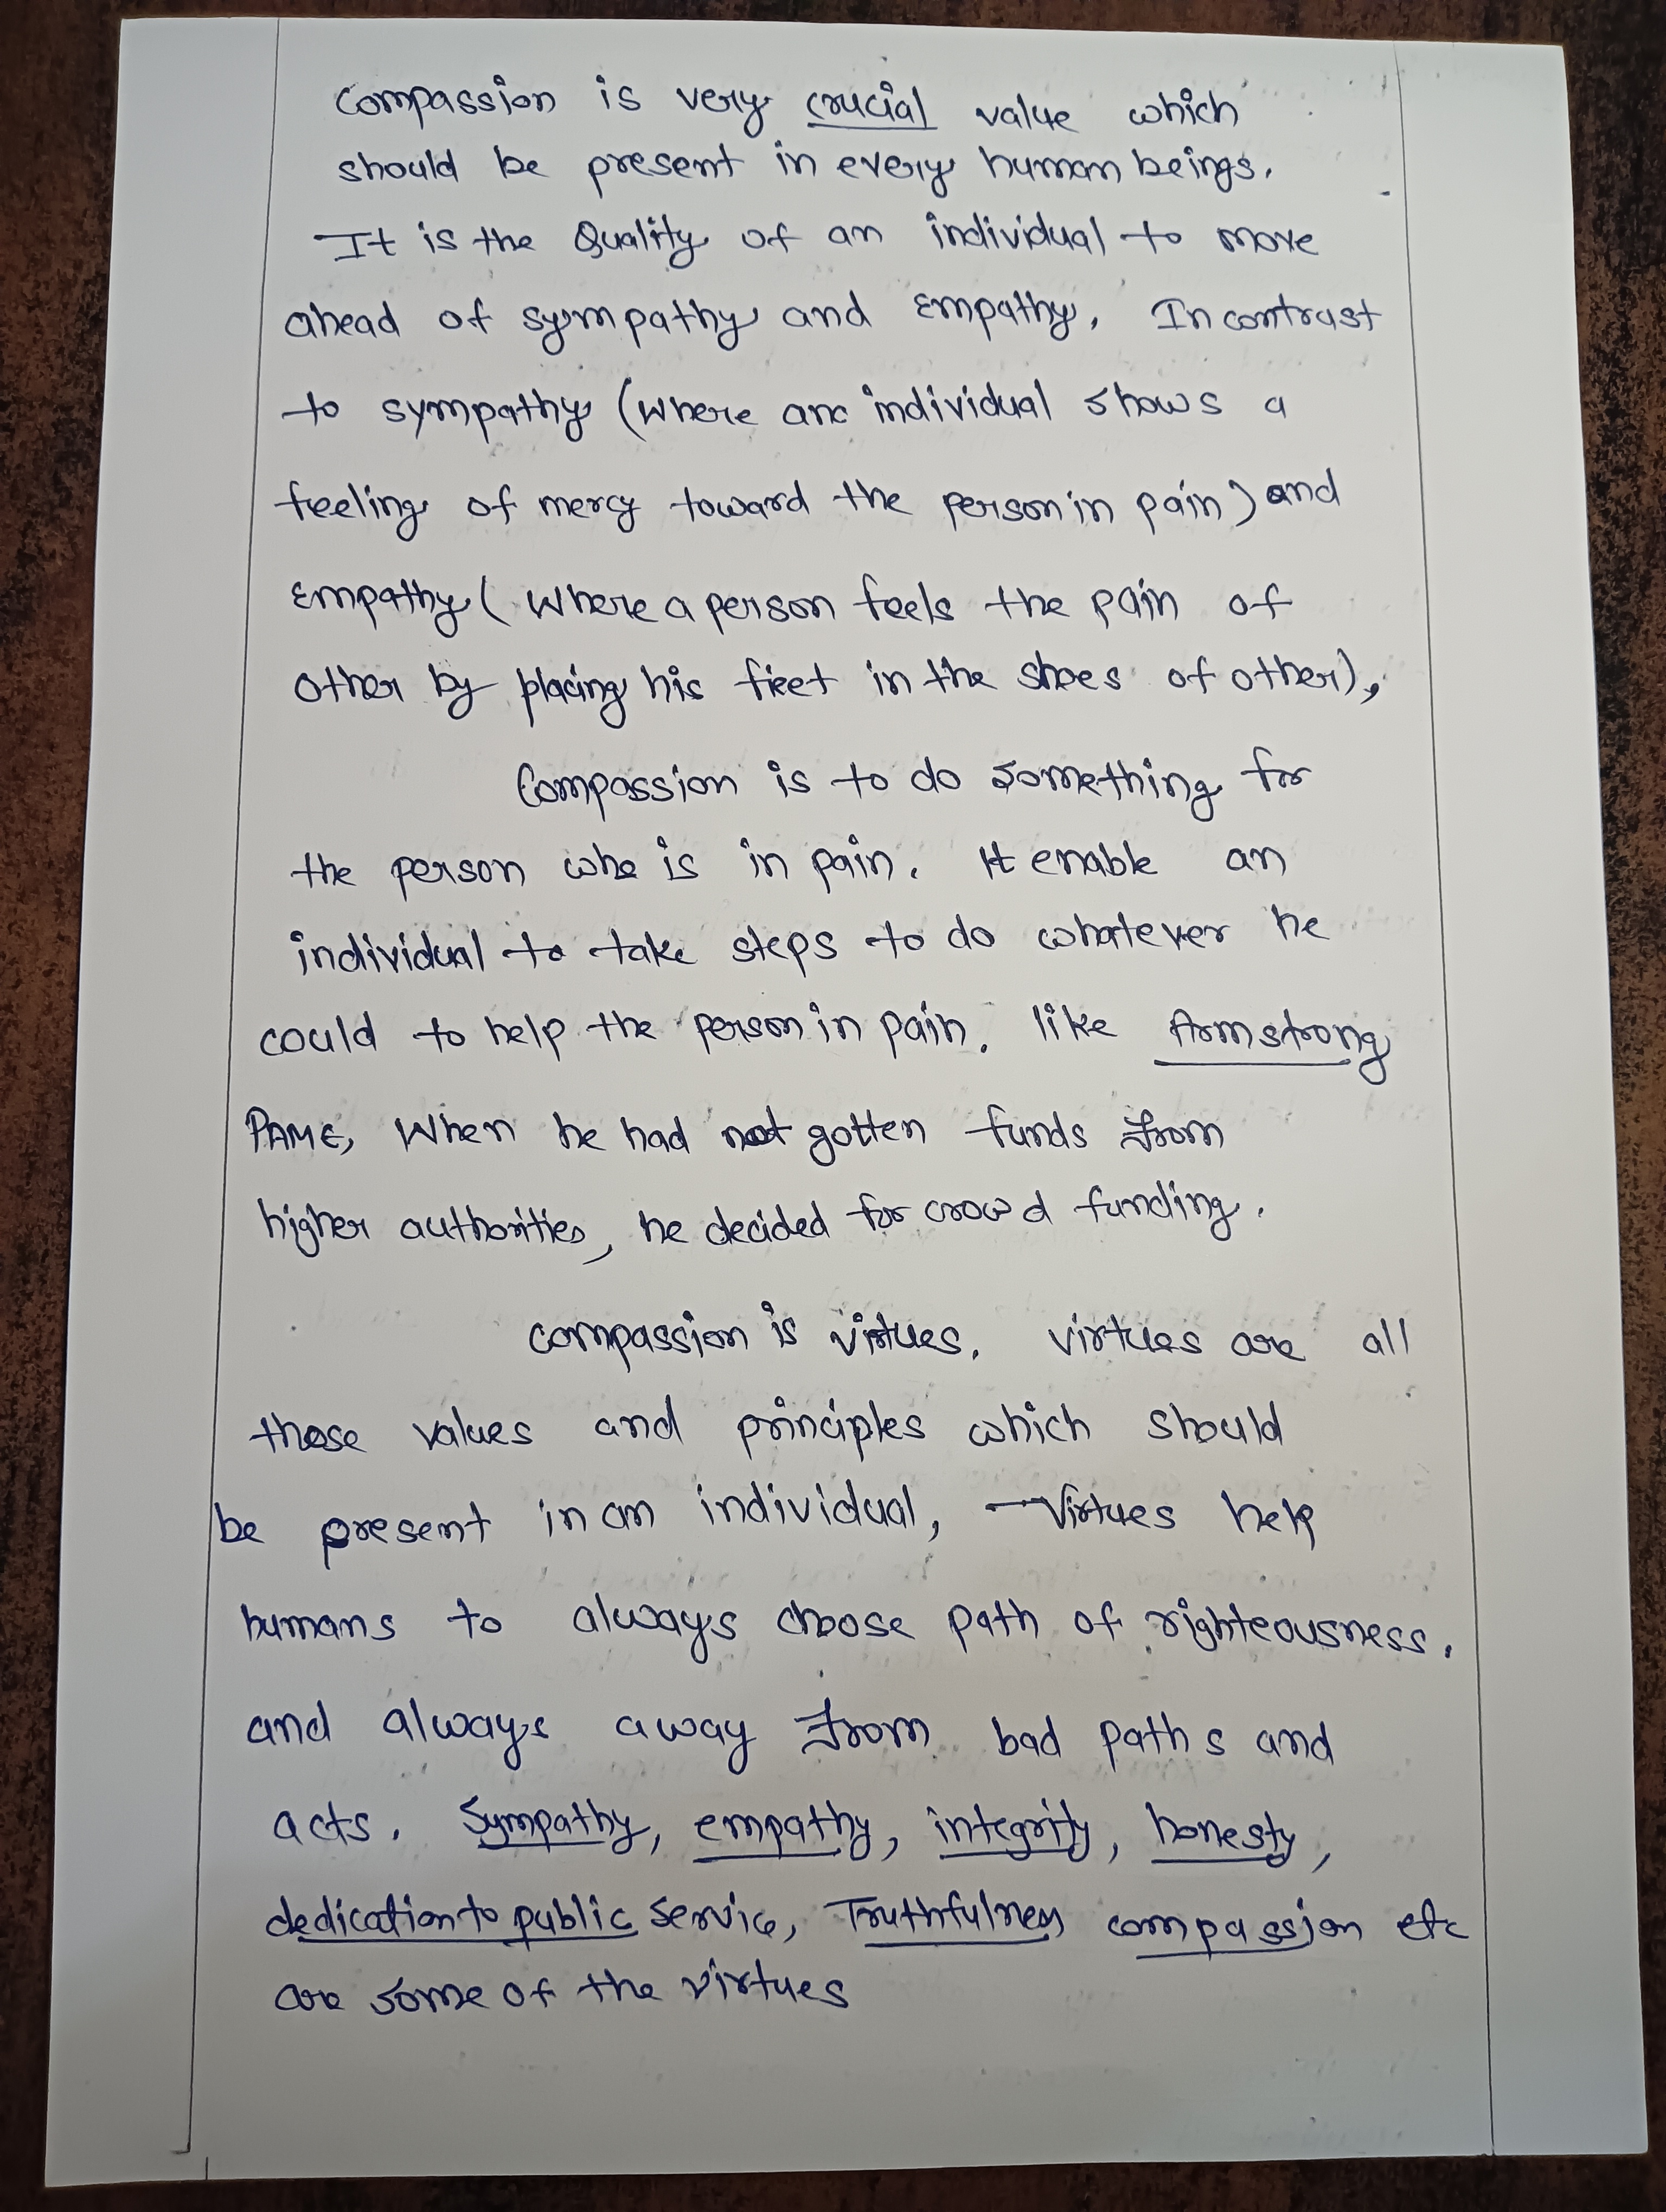 Compassion is very crucial value which
should be present in every human beings.
It is the Quality of an individual to move
ahead of sympathy and Empathy. In contrast
to sympathy (where an individual shows a
feeling of mercy toward the person in pain) and
Empathy (where a person feels the pain of
other by placing his feet in the shoes of other),
Compassion is to do something for
the person who is in pain. It enable an
individual to take steps to do whatever he
could to help the person in pain. like Armstrong
PAME, When he had not gotten funds from
higher authorities, he decided for crowd funding.
compassion is virtues. virtues are all
those values and principles which should
be present in an individual, Virtues help
humans to always choose path of righteousness.
and always away from bad paths and
acts. Sympathy, empathy, integrity, honesty,
dedication to public service, Truthfulness compassion etc
are some of the virtues